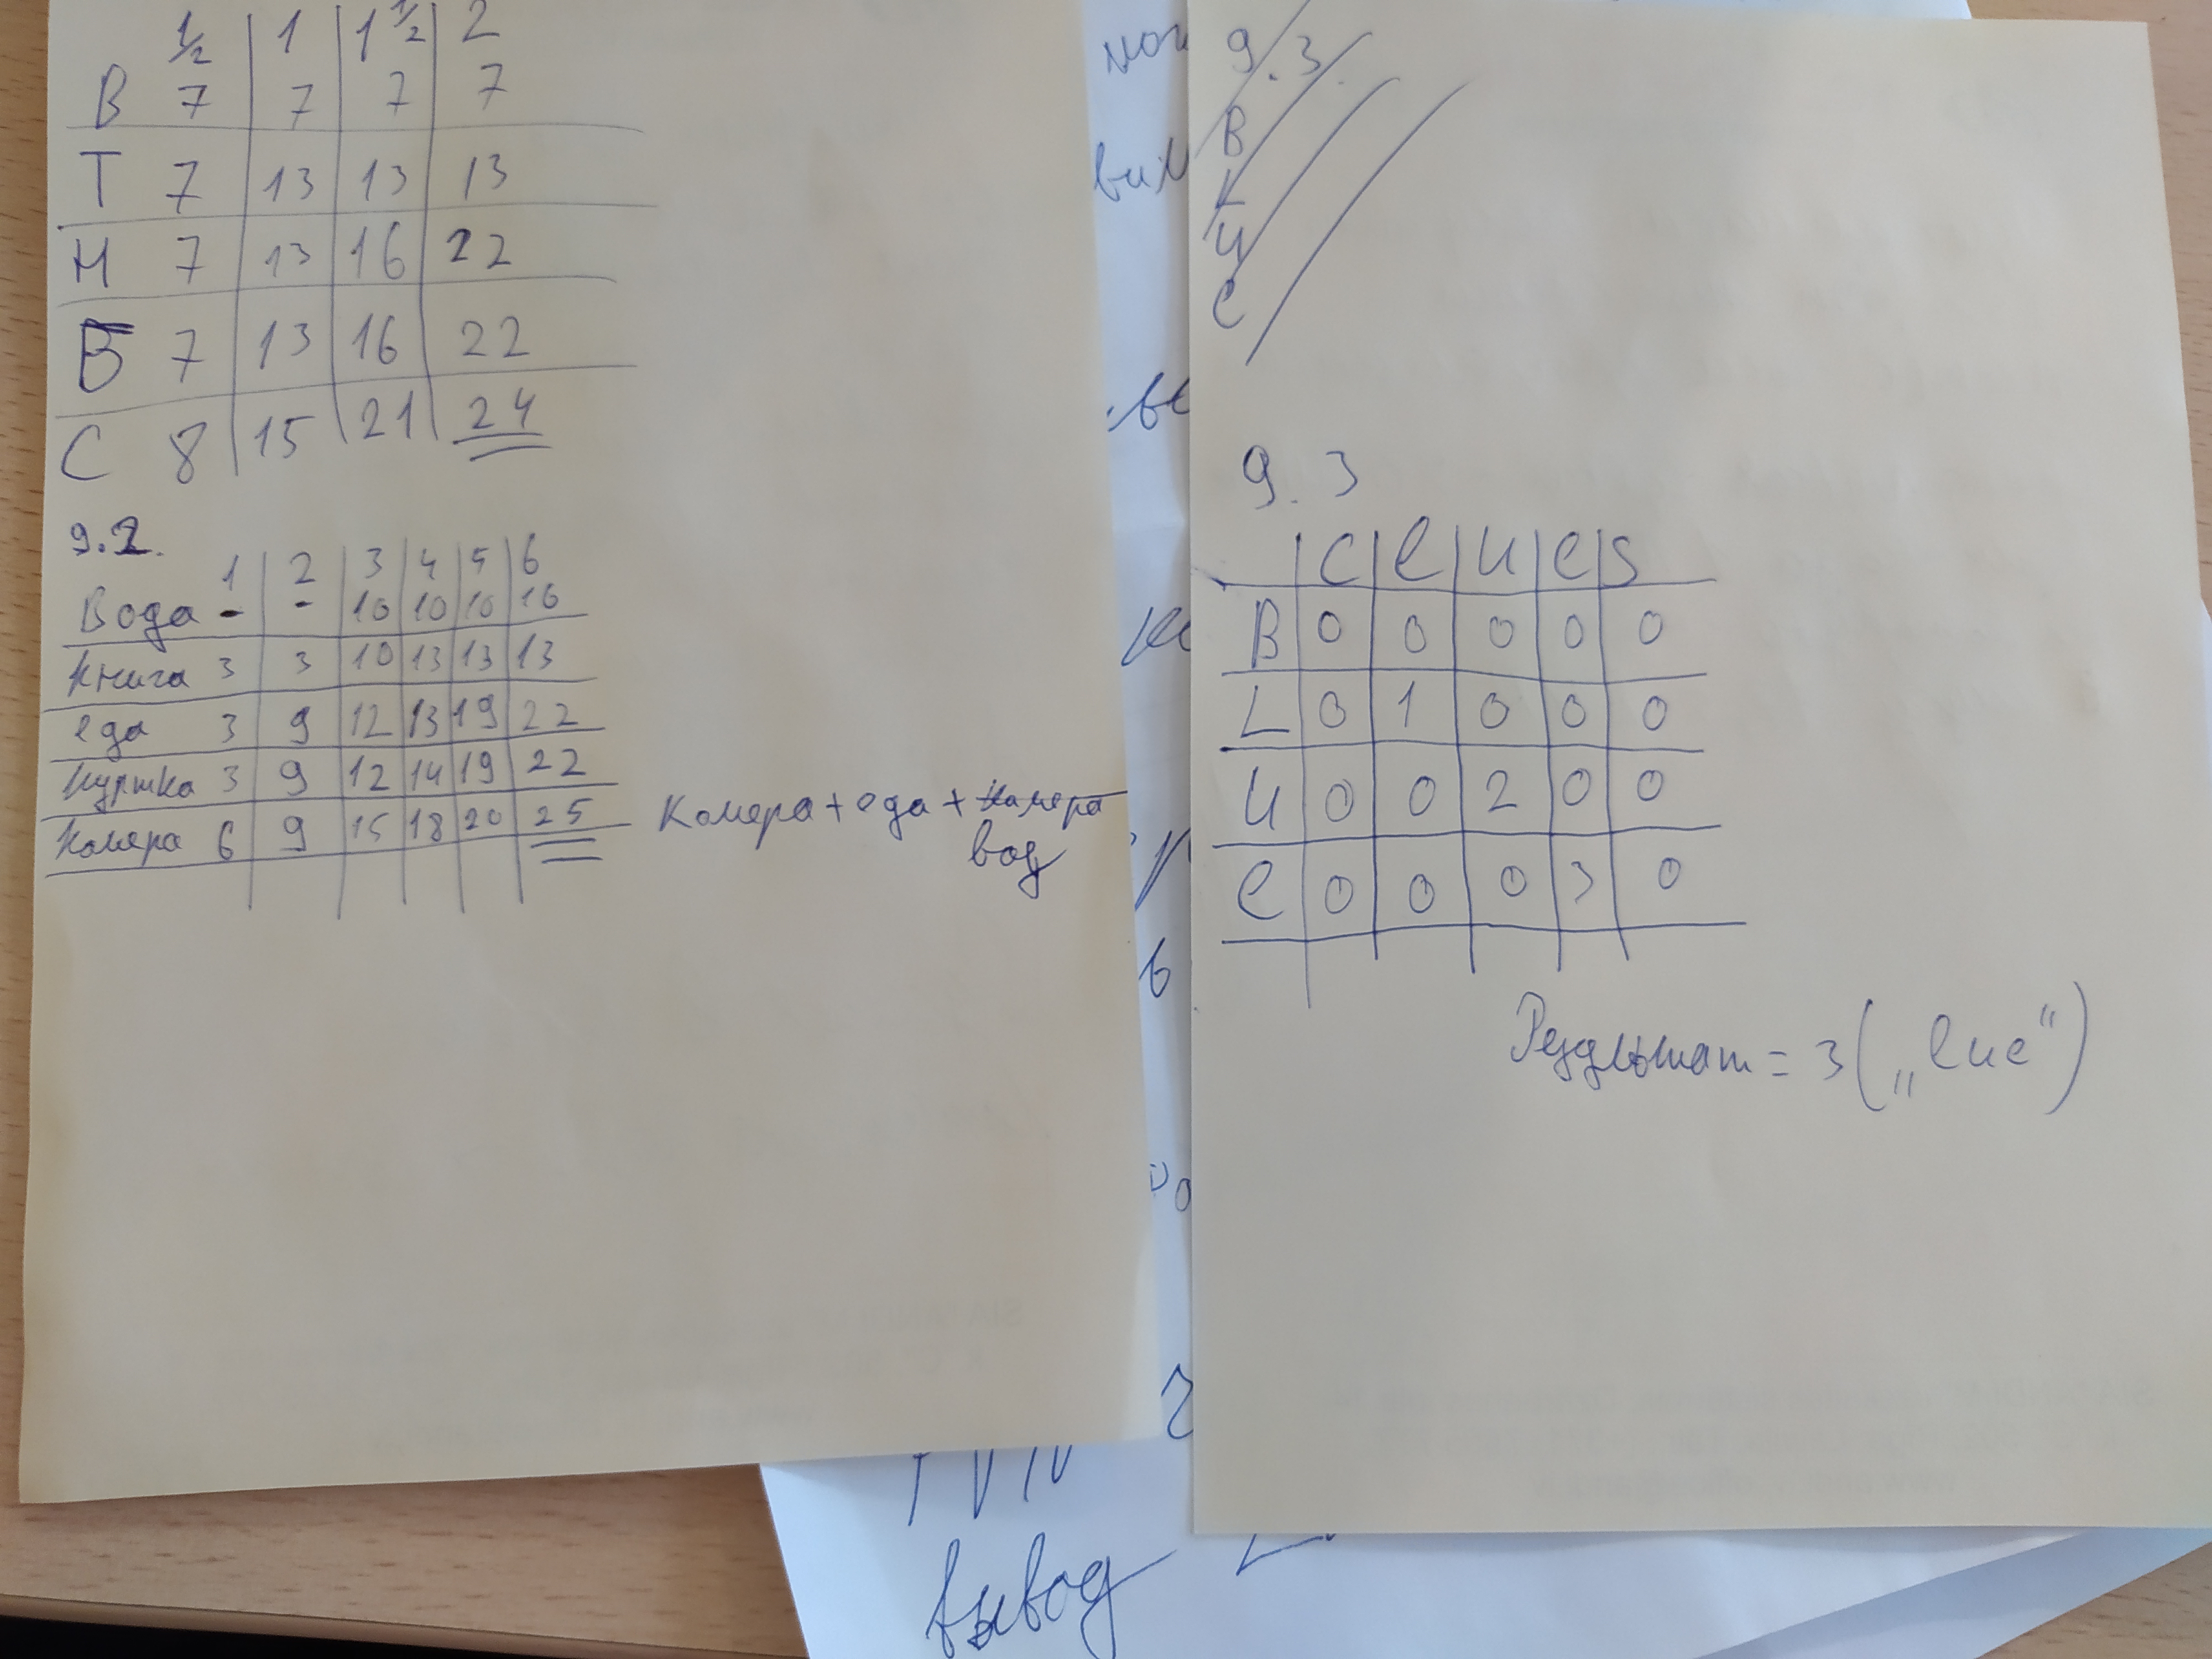 ½ | 1 | 1½ | 2
В 7 | 7 | 7 | 7
Т 7 | 13 | 13 | 13
М 7 | 13 | 16 | 22
Б 7 | 13 | 16 | 22
С 8 | 15 | 21 | 24
9.2.
1 | 2 | 3 | 4 | 5 | 6
Вода - | - | 10 | 10 | 10 | 16
Книга 3 | 3 | 10 | 13 | 13 | 13
еда 3 | 9 | 12 | 13 | 19 | 22
куртка 3 | 9 | 12 | 14 | 19 | 22
камера 6 | 9 | 15 | 18 | 20 | 25 Камера + еда + камера
воду
9.3.
B
L
U
e
9.3
C | l | u | e | s
B | 0 | 0 | 0 | 0 | 0
L | 0 | 1 | 0 | 0 | 0
U | 0 | 0 | 2 | 0 | 0
e | 0 | 0 | 0 | 3 | 0
Результат = 3 („lue“)
вывод